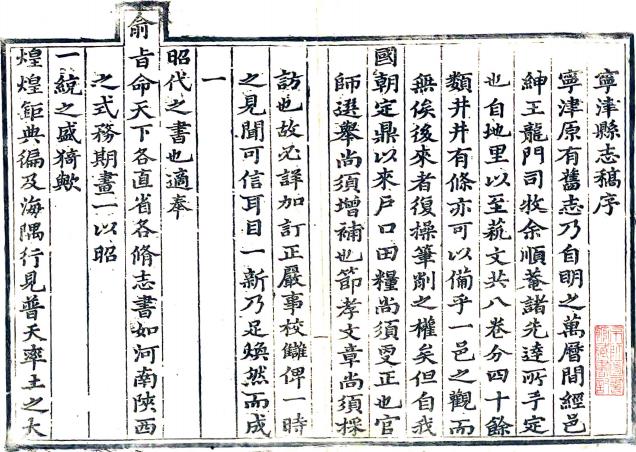 寧津縣志稿序
寧津原有舊志乃自明之萬曆間經邑
紳王龍門司牧余順菴諸先達所手定
也自地里以至藝文共八卷分四十餘
類井井有條亦可以備乎一邑之觀而
無俟後來者復操筆削之權矣但自我
國朝定鼎以來戶口田糧尚須更正也官
師選舉尚須增補也節孝文章尚須採
訪也故必詳加訂正嚴事校讎俾一時
之見聞可信耳目一新乃足煥然而成
一
昭代之書也適奉
俞旨命天下各直省各脩志書如河南陝西
之式務期畫一以昭
一統之盛猗歟
煌煌鉅典徧及海隅行見普天率土之大